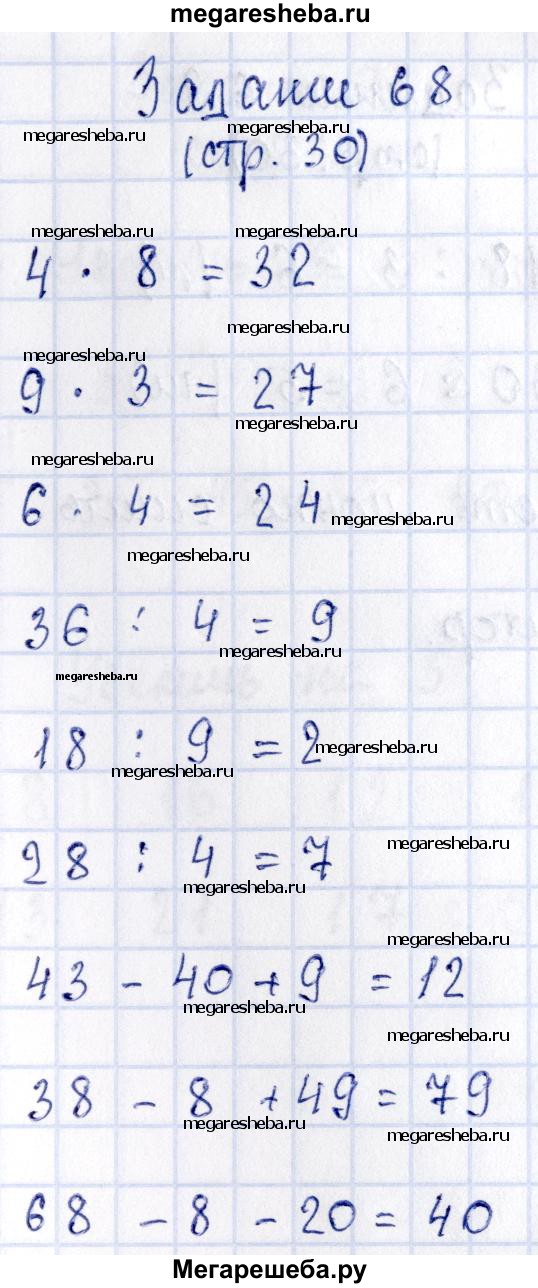 megaresheba.ru
Задание 68
megaresheba.ru megaresheba.ru
(стр. 30)
megaresheba.ru megaresheba.ru
4 · 8 = 32
megaresheba.ru
megaresheba.ru
9 · 3 = 27
megaresheba.ru
megaresheba.ru
6 · 4 = 24
megaresheba.ru
megaresheba.ru
36 : 4 = 9
megaresheba.ru
megaresheba.ru
18 : 9 = 2
megaresheba.ru
megaresheba.ru
megaresheba.ru
28 : 4 = 7
megaresheba.ru
megaresheba.ru
43 - 40 + 9 = 12
megaresheba.ru
megaresheba.ru
38 - 8 + 49 = 79
megaresheba.ru
megaresheba.ru
68 - 8 - 20 = 40
Мегарешеба.ру